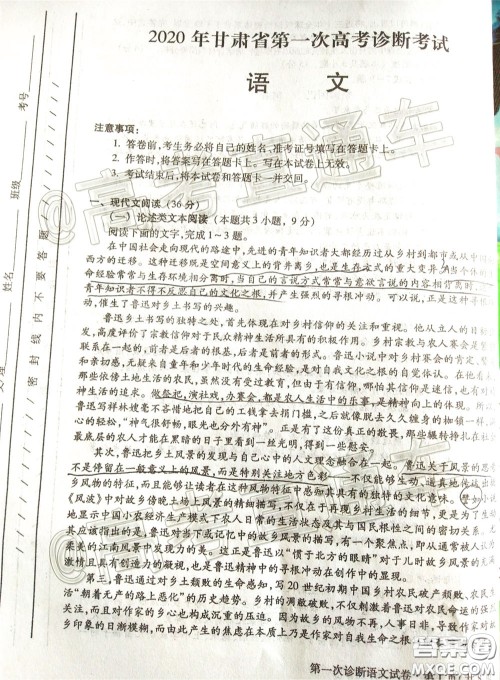 2020年甘肃省第一次高考诊断考试
语 文
注意事项：
1. 答卷前,考生务必将自己的姓名,准考证号填写在答题卡上。
2. 作答时,将答案写在答题卡上。写在本试卷上无效。
3. 考试结束后,将本试卷和答题卡一并交回。
一、现代文阅读(36分)
(一)论述类文本阅读(本题共3小题,9分)
阅读下面的文字,完成1~3题。
在中国社会走向现代的路途中,先进的青年知识者大都经历过从乡村到都市或从中
西方的迁移。这种迁移既是空间意义上的背井离乡,也是生存方式的重大变异。当个体的生
命经验常常与生存环境相分离时,当自己的言说方式常常与意欲言说的内容相背离时,
青年知识者不得不反思自己的文化之根,并产生强烈的寻根冲动。可以说,正是这种
催生了鲁迅对乡土书写的兴趣。
鲁迅乡土书写的独特之处,首先体现在对乡村信仰的关注和重视。他从立人的目标
发,高度评价了宗教信仰对于民众精神生活所具有的积极作用。乡村宗教与农人赛会是
联系在一起的,前者是后者的根基,后者是前者的形式。鲁迅小说中对乡村赛会的肯定
和亲切感,无疑来自童年和少年时代的生命经验,是对自我文化之根的自觉体认。在他看
那些依傍于土地生活的农民,虽然没有受过教育,但由于有信仰,其精神和情感是
土地生活的需求的。做祭祀、演社戏、办赛会,都是农人生活中的乐事,是精神向上的体现。
迅写祥林嫂毫不吝惜地把自己的工钱拿去捐门槛,之后就像脱去久久缠身的枷锁似的,
心的轻松,“神气很舒畅,眼光也分外有神”。正是有了这份真正的敬畏,那些辗转挣扎在社
最底层的农人才能在黑暗的日子里看到一丝光明,得到一些慰安？
其次,鲁迅把乡土风景的发现与自己心中的人文理念融合在一起。鲁迅关于风景的思
不是停留在一般意义上的风景,而是特别关注地方色彩——不仅能够生动
乡风物的特征,而且也能够让读者在这种风物特征中感悟到某种具有原发性的文化意味。
《风波》中对故乡傍晚土场上风景的描写,不仅在于再现乡村生活的实景,更是为了生动
地显示中国小农经济生产模式下农人日常的生活状态及其与国民根性之间的密切关系。
其应该指出的是,鲁迅对当下或记忆中的故乡风景的描写,有一个聚焦点,即从
柔美的江南风景中发现力的美。这正是鲁迅以“惯于北方的眼睛”对于儿时故乡风景的
具有创造力的凝视,也是鲁迅精神中的寻根冲动在创作中的显现。
第三,鲁迅通过对乡土颓败的生命感知,写20世纪初期中国乡村农民破产颓败、
活“朝着无产的路上恶化”的历史趋势。乡村的凋敝破败,不仅刺激着鲁迅对农民命运的强烈
关注,而且对作家的乡土心也构成沉重的压迫。因为故乡的风物不再,人事变迁,故乡
印象日渐模糊,而由此产生的焦虑在本质上乃是作家对自我生命之根
第一次诊断语文试卷